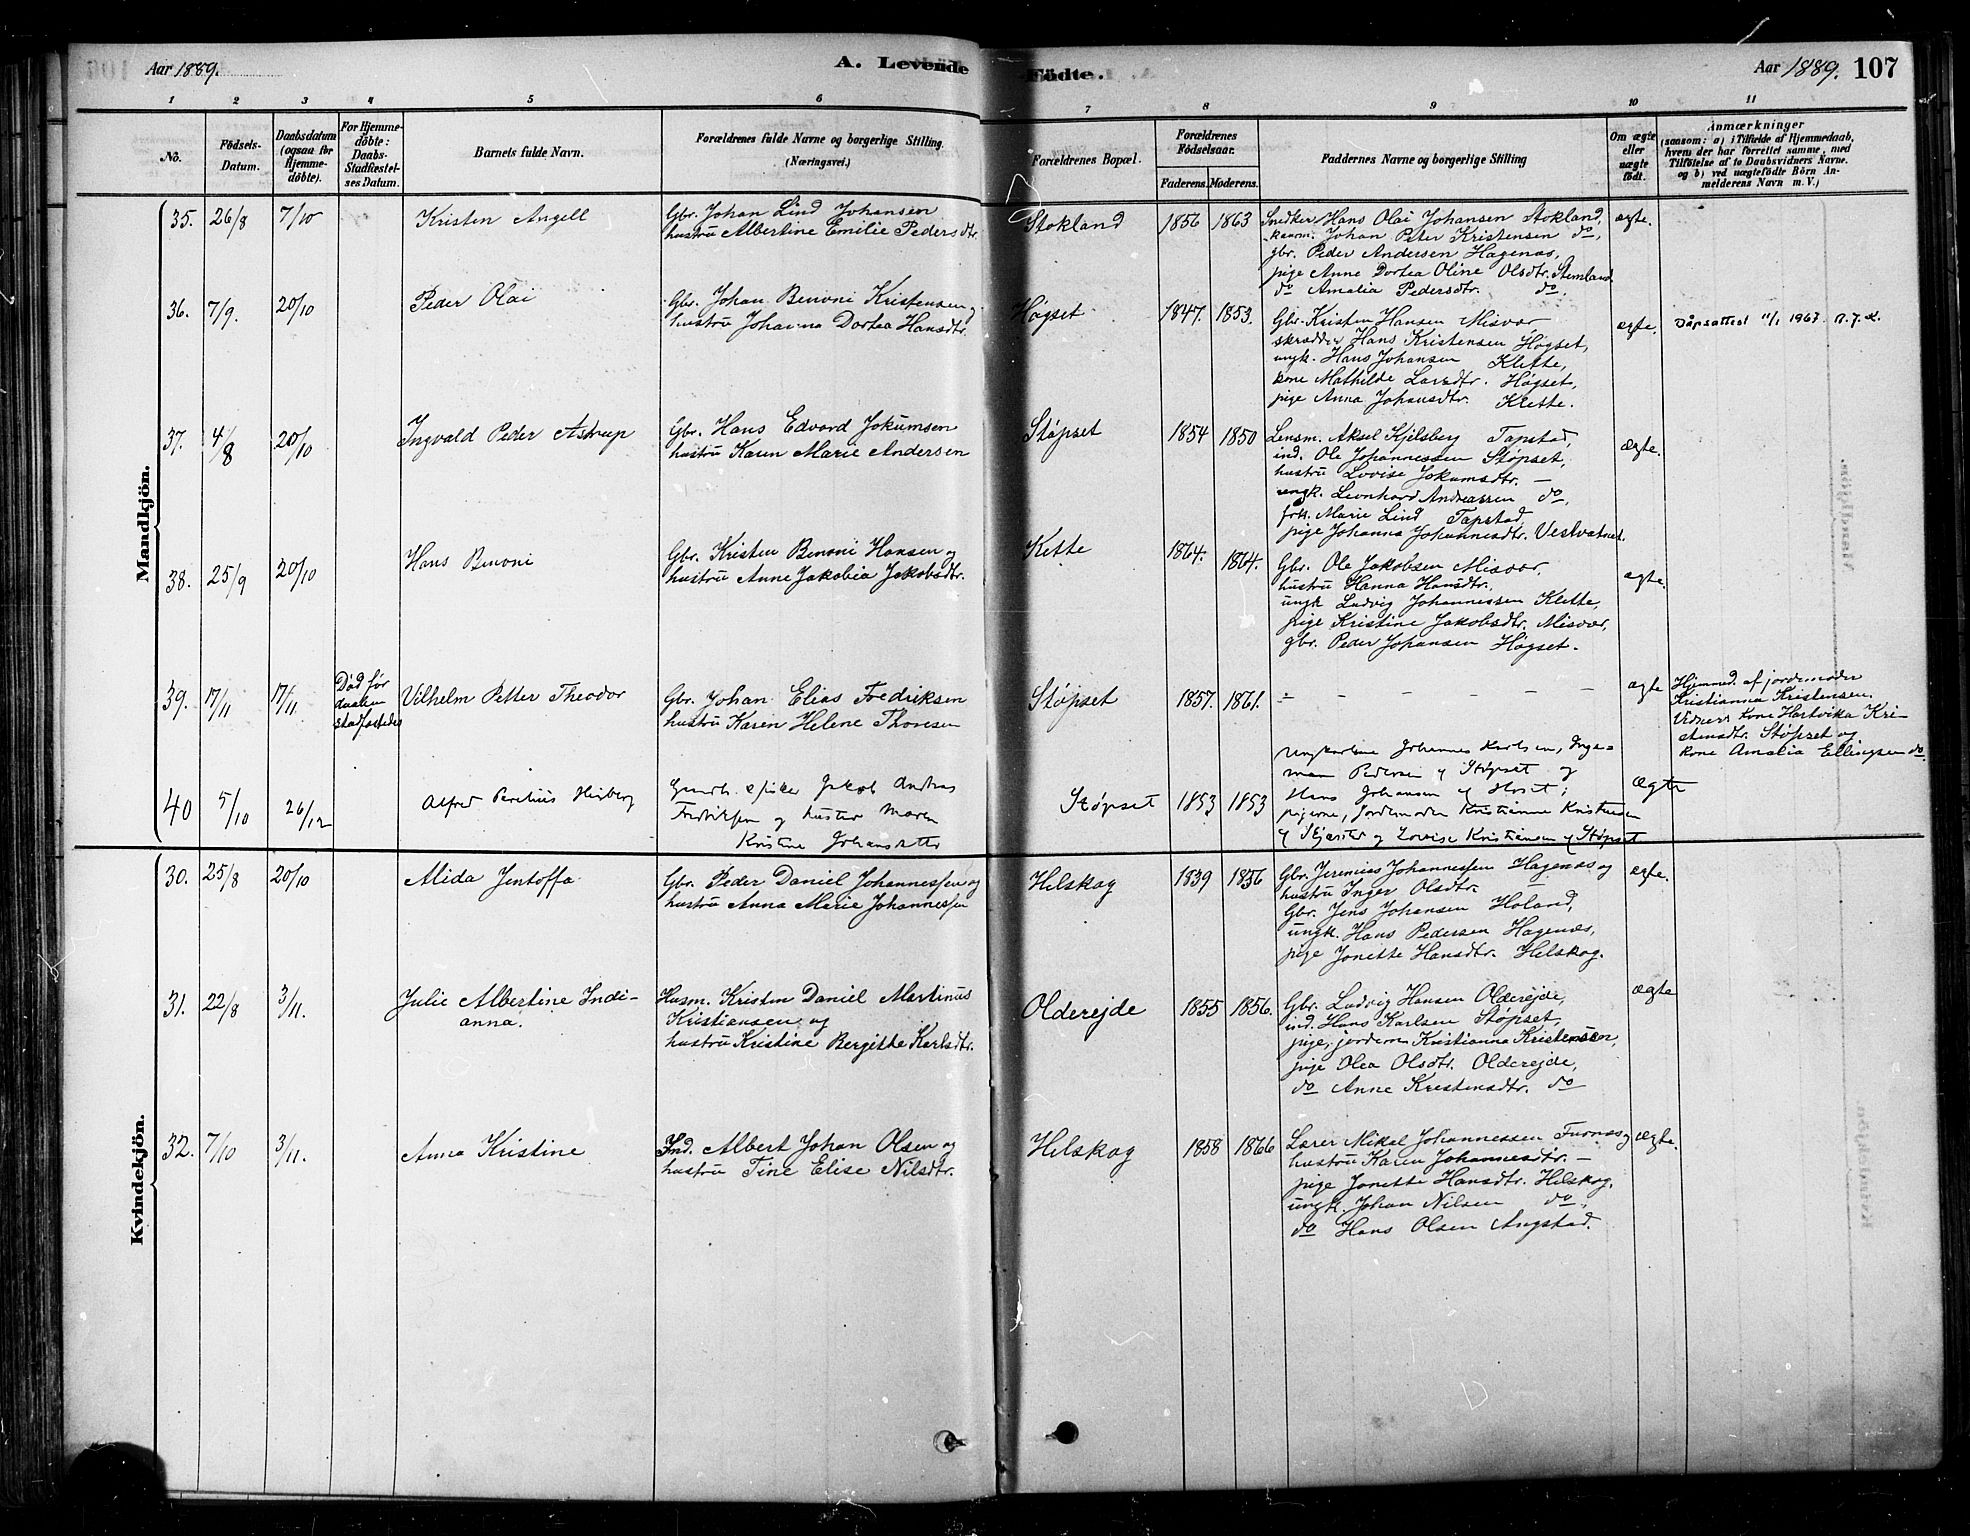 Aar 1889.
A. Levende
Födte.
Aar 1889. 107
1 2 3 4 5 6 7 8 9 10 11
No.
Födsels-
Datum.
Daabsdatum
(ogsaa for
Hjemme-
döbte).
For Hjemme-
döbte:
Daabs-
Stadfæstel-
ses Datum.
Barnets fulde Navn.
Forældrenes fulde Navne og borgerlige Stilling.
(Næringsvei.)
Forældrenes Bopæl.
Forældrenes
Födselsaar.
Faderens. Moderens.
Faddernes Navne og borgerlige Stilling
Om ægte
eller
uægte
födt.
Anmærkninger
(saasom: a) i Tilfælde af Hjemmedaab,
hvem der har forrettet samme, med
Tilföielse af to Daabsvidners Navne.
og b) ved uægtefödte Börn An-
melderens Navn m. V.)
Mandkjön.
35. 26/8 7/10 Kristen Angell
Gbr. Johan Lind Johansen
hustru Albertine Emilie Pedersdtr.
Stokland 1856 1863
Snedker Hans Olai Johansen Stokland,
Johan Peter Kristensen do,
gbr. Peder Andersen Hagenæs,
pige Anne Dortea Oline Olsdtr. Stemland
do Amalia Pedersdtr. do.
ægte.
36. 7/9. 20/10 Peder Olai
Gbr. Johan Benoni Kristensen og
hustru Johanna Dortea Hansdtr.
Høgset. 1847. 1853.
Gbr. Kristen Hansen Misvær,
skrædder Hans Kristensen Høgset,
ungk. Hans Johansen Klette,
kone Mathilde Larsdtr. Høgset,
pige Anna Johansdtr. Klette.
ægte.
Dåpsattest 11/1 1967.
37. 4/8 20/10 Ingvald Peder Astrup
Gbr. Hans Edvard Jokumsen
hustru Karen Marie Andersen
Støpset 1854 1850
Lensm. Aksel Kjelsberg Tapstad,
ind. Ole Johannessen Støpset,
hustru Lovise Jokumsdtr. —
ungk. Leonhard Andreassen do,
frk. Marie Lind Tapstad,
pige Johanna Johannesdtr. Vestvatnet.
Ægte.
38. 25/9 20/10 Hans Benoni
Gbr. Kristen Benoni Hansen og
hustru Anne Jakobia Jakobsdtr.
Klette 1864. 1864.
Gbr. Ole Jakobsen Misvær,
hustru Hanna Hansdtr.,
ungk Ludvig Johannessen Klette,
pige Kristine Jakobsdtr. Misvær,
gbr. Peder Johansen Høgset.
ægte.
39. 17/11 17/11. Død før
daaben
stadfæstedes
Vilhelm Petter Theodor
Gbr. Johan Elias Fredriksen
hustru Karen Helene Thoresen
Støpset 1857. 1861. — — — — —
ægte
Hjemmed. af jordemoder
Kristianna Kristensen.
Vidner: Kone Hartvika Kri-
stensdtr. Støpset og
kone Amalia Ellingsen do.
40 5/10 26/12 Alfred Parelius
Gaardbr. & fisker Jakob Andreas
Fredriksen og hustru Maren
Kristine Johansdatter
Støpset 1853 1853
Ungkarlene Johannes Karlsen, Inge-
man Pedersen af Støpset og
Hans Johansen af Hoset;
pigerne, Jordemoder Kristianne Kristensen
af og Lovise Kristiansen af Støpset
Ægte
Kvindekjön.
30. 25/8 20/10 Alida Jentoffa.
Gbr. Peder Daniel Johannessen og
hustru Anna Marie Johannessen
Helskog 1839 1856
Gbr. Jeremias Johannessen Hagenæs og
hustru Inger Olsdtr.
Gbr. Jens Johansen Høland,
ungk. Hans Pedersen Hagenæs,
pige Jonette Hansdtr. Helskog.
ægte.
31. 22/8 3/11. Julie Albertine Indi-
anna.
Husm. Kristen Daniel Martinus
Kristiansen og
hustru Kristine Bergitte Karlsdtr.
Olderejde 1855 1856.
Gbr. Ludvig Hansen Olderejde,
ind. Hans Karlsen Støpset,
pige, jordem. Kristianna Kristensen,
pige Olea Olsdtr. Olderejde,
do Anne Kristensdtr. do
Ægte
32. 7/10 3/11. Anna Kristine
Ind. Albert Johan Olsen og
hustru Tine Elise Nilsdtr.
Helskog 1858 1866
Lærer Mikal Johannessen Furnes og
hustru Karen Johannesdtr. —
pige Jonette Hansdtr. Helskog,
ungk. Johan Nilsen do,
do Hans Olsen Angstad.
ægte.